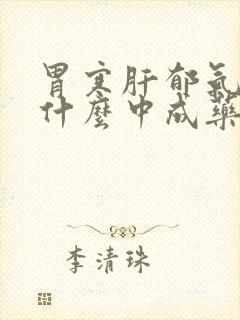 胃寒肝郁氣
什麼中成藥
李清珠